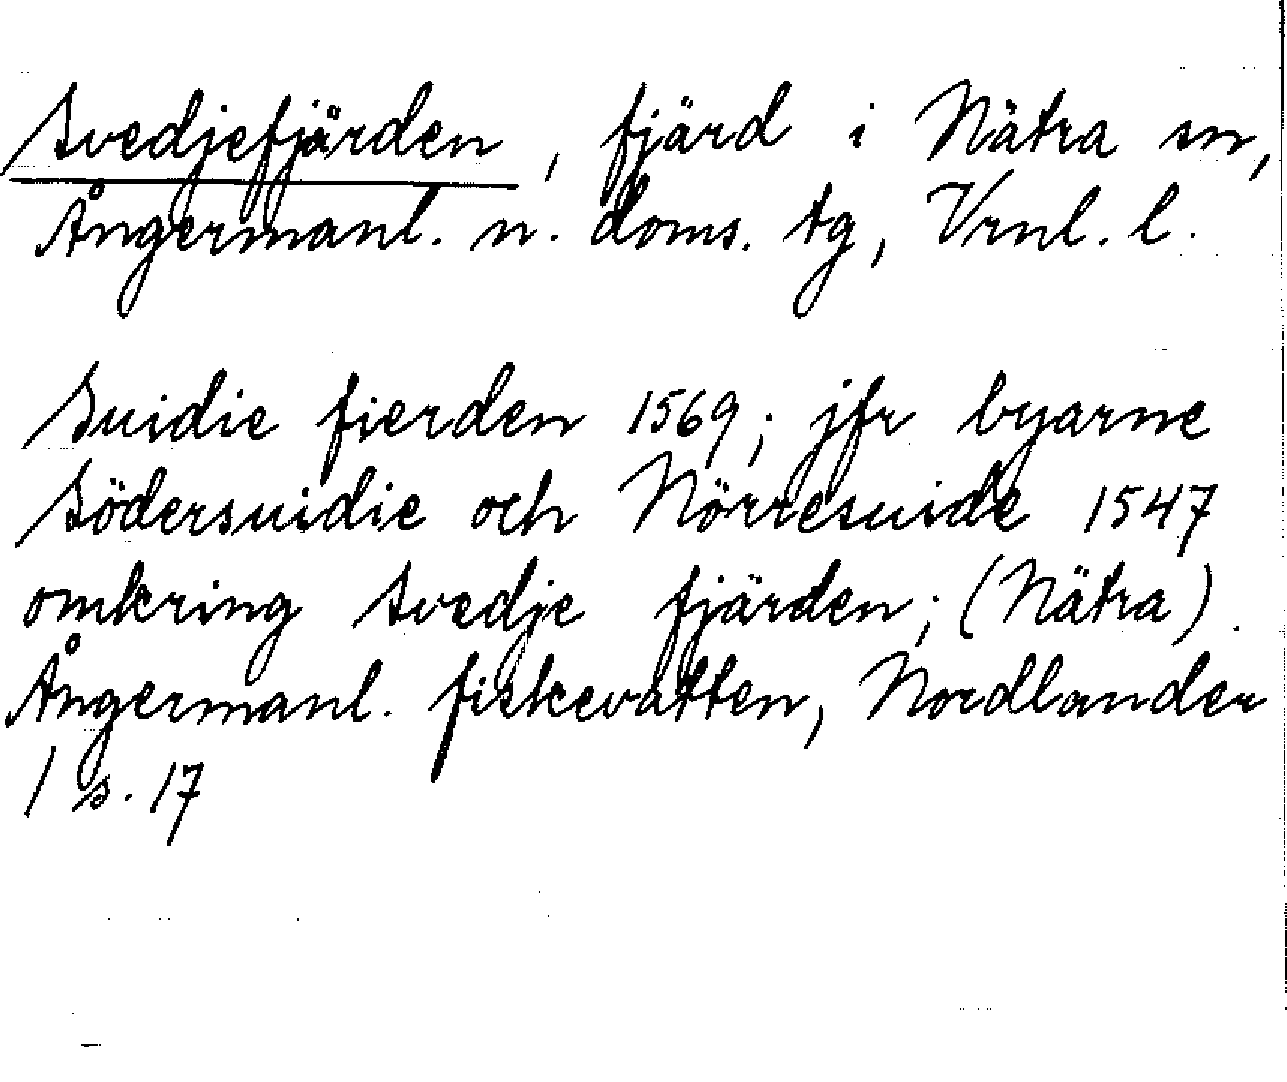 Svedjefjärden, fjärd i Nätra sn,
Ångermanl. n. doms. tg, Vrnl. l.
Suidie fierden 1569; jfr byarne
Södersuidie och Nörresuide 1547
omkring Svedje fjärden; (Nätra).
Ångermanl. fiskevatten, Nordlander
1 s. 17